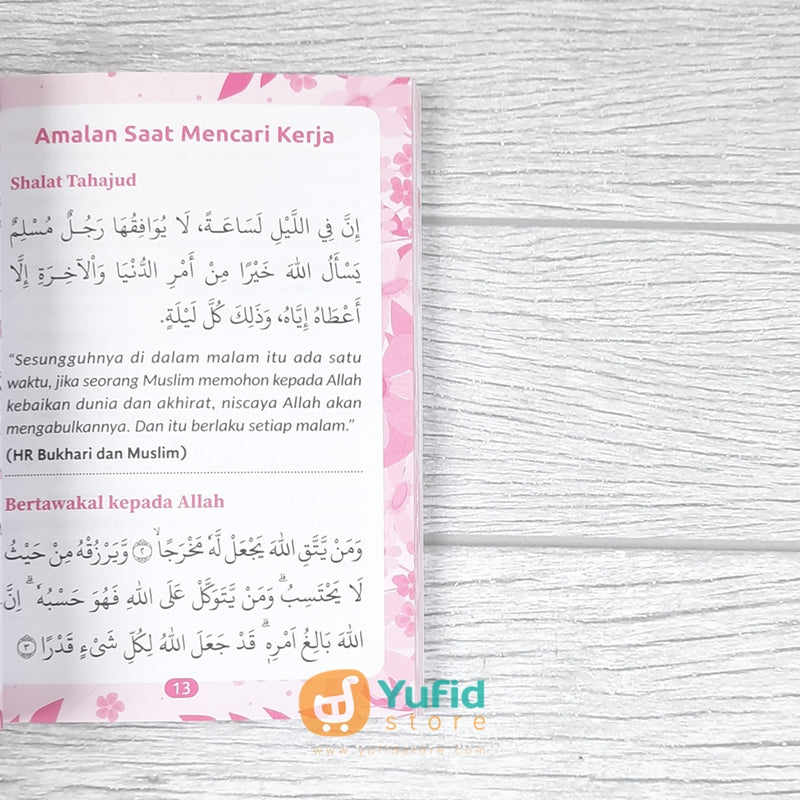 Amalan Saat Mencari Kerja
Shalat Tahajud
إِنَّ فِي اللَّيْلِ لَسَاعَـةً، لَا يُوَافِقُهَا رَجُـلٌ مُسْلِمٌ
يَسْأَلُ اللهَ خَيْرًا مِنْ أَمْرِ الدُّنْيَا وَالْآخِـرَةِ إِلَّا
أَعْطَاهُ إِيَّاهُ، وَذَلِكَ كُلَّ لَيْلَةٍ.
“Sesungguhnya di dalam malam itu ada satu
waktu, jika seorang Muslim memohon kepada Allah
kebaikan dunia dan akhirat, niscaya Allah akan
mengabulkannya. Dan itu berlaku setiap malam.”
(HR Bukhari dan Muslim)
Bertawakal kepada Allah
وَمَنْ يَّتَّقِ اللهَ يَجْعَلْ لَّهٗ مَخْرَجًاۙ ۝٢ وَّيَرْزُقْهُ مِنْ حَيْثُ
لَا يَحْتَسِبُۗ وَمَنْ يَّتَوَكَّلْ عَلَى اللهِ فَهُوَ حَسْبُهٗۗ اِنَّ
اللهَ بَالِغُ اَمْرِهٖۗ قَدْ جَعَلَ اللهُ لِكُلِّ شَيْءٍ قَدْرًا ۝٣
13
Yufid
store
www.yufidstore.com